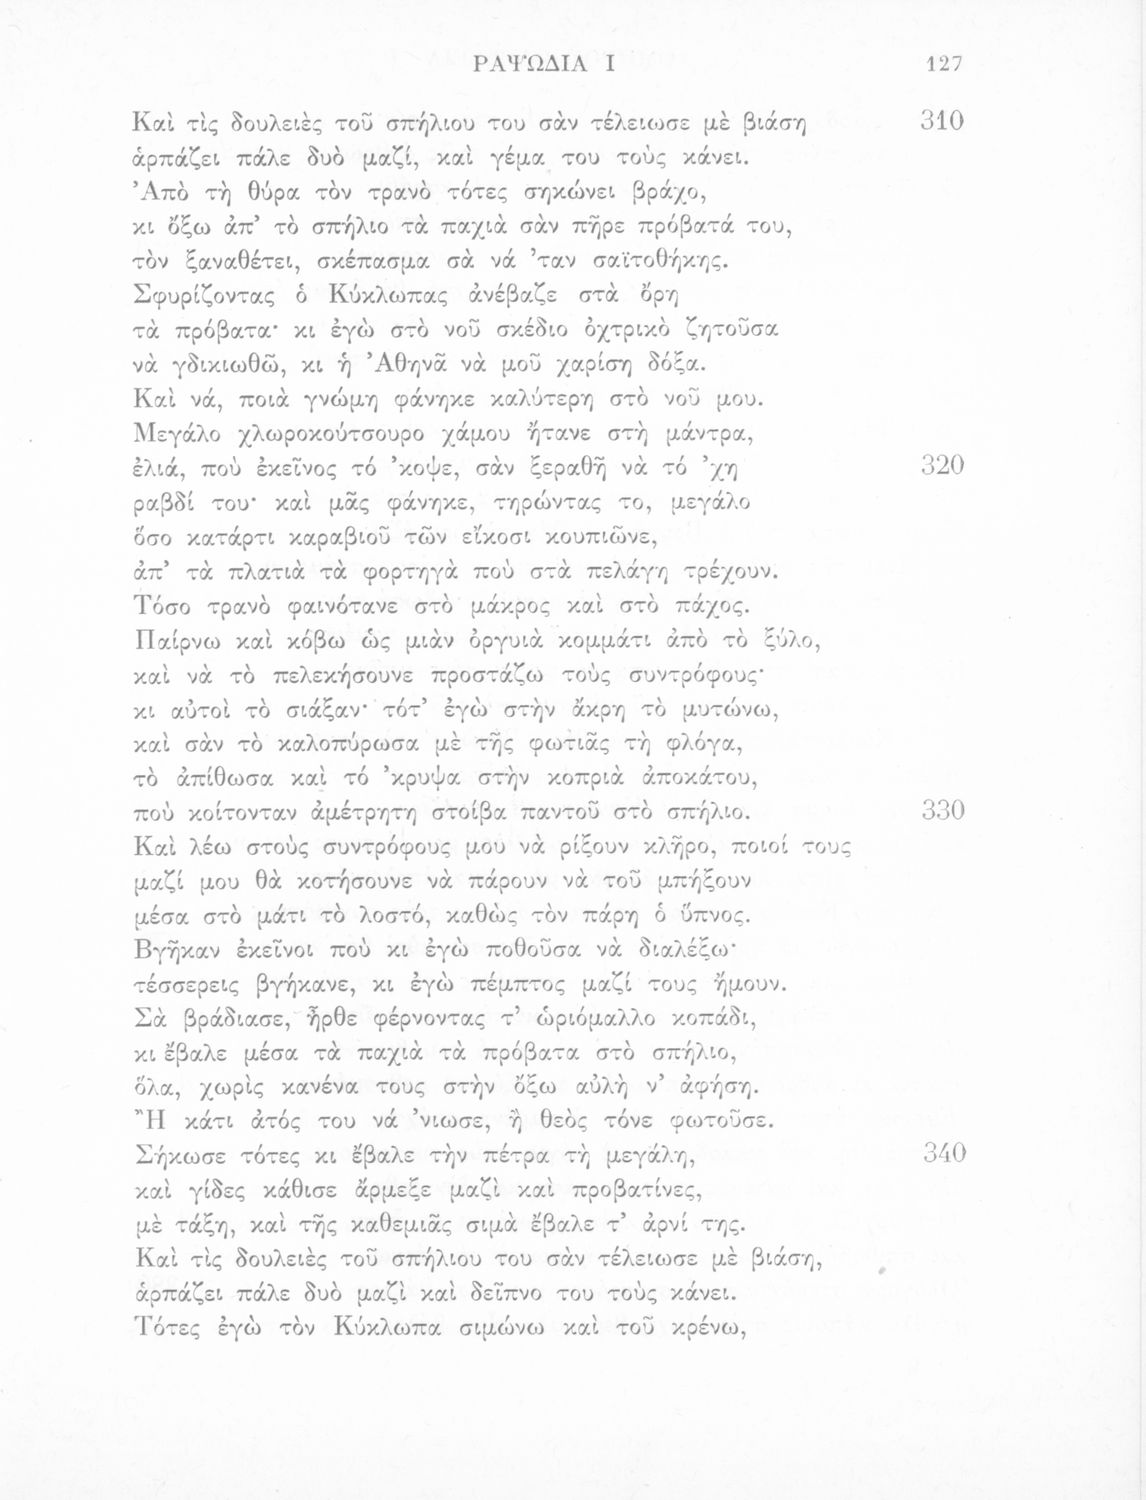 ΡΑΨΩΔΙΑ Ι 127
Καὶ τὶς δουλειὲς τοῦ σπήλιου του σὰν τέλειωσε μὲ βιάση 310
ἁρπάζει πάλε δυὸ μαζί, καὶ γέμα του τοὺς κάνει.
Ἀπὸ τὴ θύρα τὸν τρανὸ τότες σηκώνει βράχο,
κι ὄξω ἀπ’ τὸ σπήλιο τὰ παχιὰ σὰν πῆρε πρόβατά του,
τὸν ξαναθέτει, σκέπασμα σὰ νά ’ταν σαϊτοθήκης.
Σφυρίζοντας ὁ Κύκλωπας ἀνέβαζε στὰ ὄρη
τὰ πρόβατα· κι ἐγὼ στὸ νοῦ σκέδιο ὀχτρικὸ ζητοῦσα
νὰ γδικιωθῶ, κι ἡ Ἀθηνᾶ νὰ μοῦ χαρίση δόξα.
Καὶ νά, ποιὰ γνώμη φάνηκε καλύτερη στὸ νοῦ μου.
Μεγάλο χλωροκούτσουρο χάμου ἤτανε στὴ μάντρα,
ἐλιά, ποὺ ἐκεῖνος τό ’κοψε, σὰν ξεραθῆ νὰ τό ’χη 320
ραβδί του· καὶ μᾶς φάνηκε, τηρώντας το, μεγάλο
ὅσο κατάρτι καραβιοῦ τῶν εἴκοσι κουπιῶνε,
ἀπ’ τὰ πλατιὰ τὰ φορτηγὰ ποὺ στὰ πελάγη τρέχουν.
Τόσο τρανὸ φαινότανε στὸ μάκρος καὶ στὸ πάχος.
Παίρνω καὶ κόβω ὡς μιὰν ὀργυιὰ κομμάτι ἀπὸ τὸ ξύλο,
καὶ νὰ τὸ πελεκήσουνε προστάζω τοὺς συντρόφους·
κι αὐτοὶ τὸ σιάξαν· τότ’ ἐγὼ στὴν ἄκρη τὸ μυτώνω,
καὶ σὰν τὸ καλοπύρωσα μὲ τῆς φωτιᾶς τὴ φλόγα,
τὸ ἀπίθωσα καὶ τό ’κρυψα στὴν κοπριὰ ἀποκάτου,
ποὺ κοίτονταν ἀμέτρητη στοίβα παντοῦ στὸ σπήλιο. 330
Καὶ λέω στοὺς συντρόφους μου νὰ ρίξουν κλῆρο, ποιοί τους
μαζί μου θὰ κοτήσουνε νὰ πάρουν νὰ τοῦ μπήξουν
μέσα στὸ μάτι τὸ λοστό, καθὼς τὸν πάρη ὁ ὕπνος.
Βγῆκαν ἐκεῖνοι ποὺ κι ἐγὼ ποθοῦσα νὰ διαλέξω·
τέσσερεις βγήκανε, κι ἐγὼ πέμπτος μαζί τους ἤμουν.
Σὰ βράδιασε, ἦρθε φέρνοντας τ’ ὡριόμαλλο κοπάδι,
κι ἔβαλε μέσα τὰ παχιὰ τὰ πρόβατα στὸ σπήλιο,
ὅλα, χωρὶς κανένα τους στὴν ὄξω αὐλὴ ν’ ἀφήση.
Ἢ κάτι ἀτός του νά ’νιωσε, ἢ θεὸς τόνε φωτοῦσε.
Σήκωσε τότες κι ἔβαλε τὴν πέτρα τὴ μεγάλη, 340
καὶ γίδες κάθισε ἄρμεξε μαζὶ καὶ προβατίνες,
μὲ τάξη, καὶ τῆς καθεμιᾶς σιμὰ ἔβαλε τ’ ἀρνί της.
Καὶ τὶς δουλειὲς τοῦ σπήλιου του σὰν τέλειωσε μὲ βιάση,
ἁρπάζει πάλε δυὸ μαζὶ καὶ δεῖπνο του τοὺς κάνει.
Τότες ἐγὼ τὸν Κύκλωπα σιμώνω καὶ τοῦ κρένω,